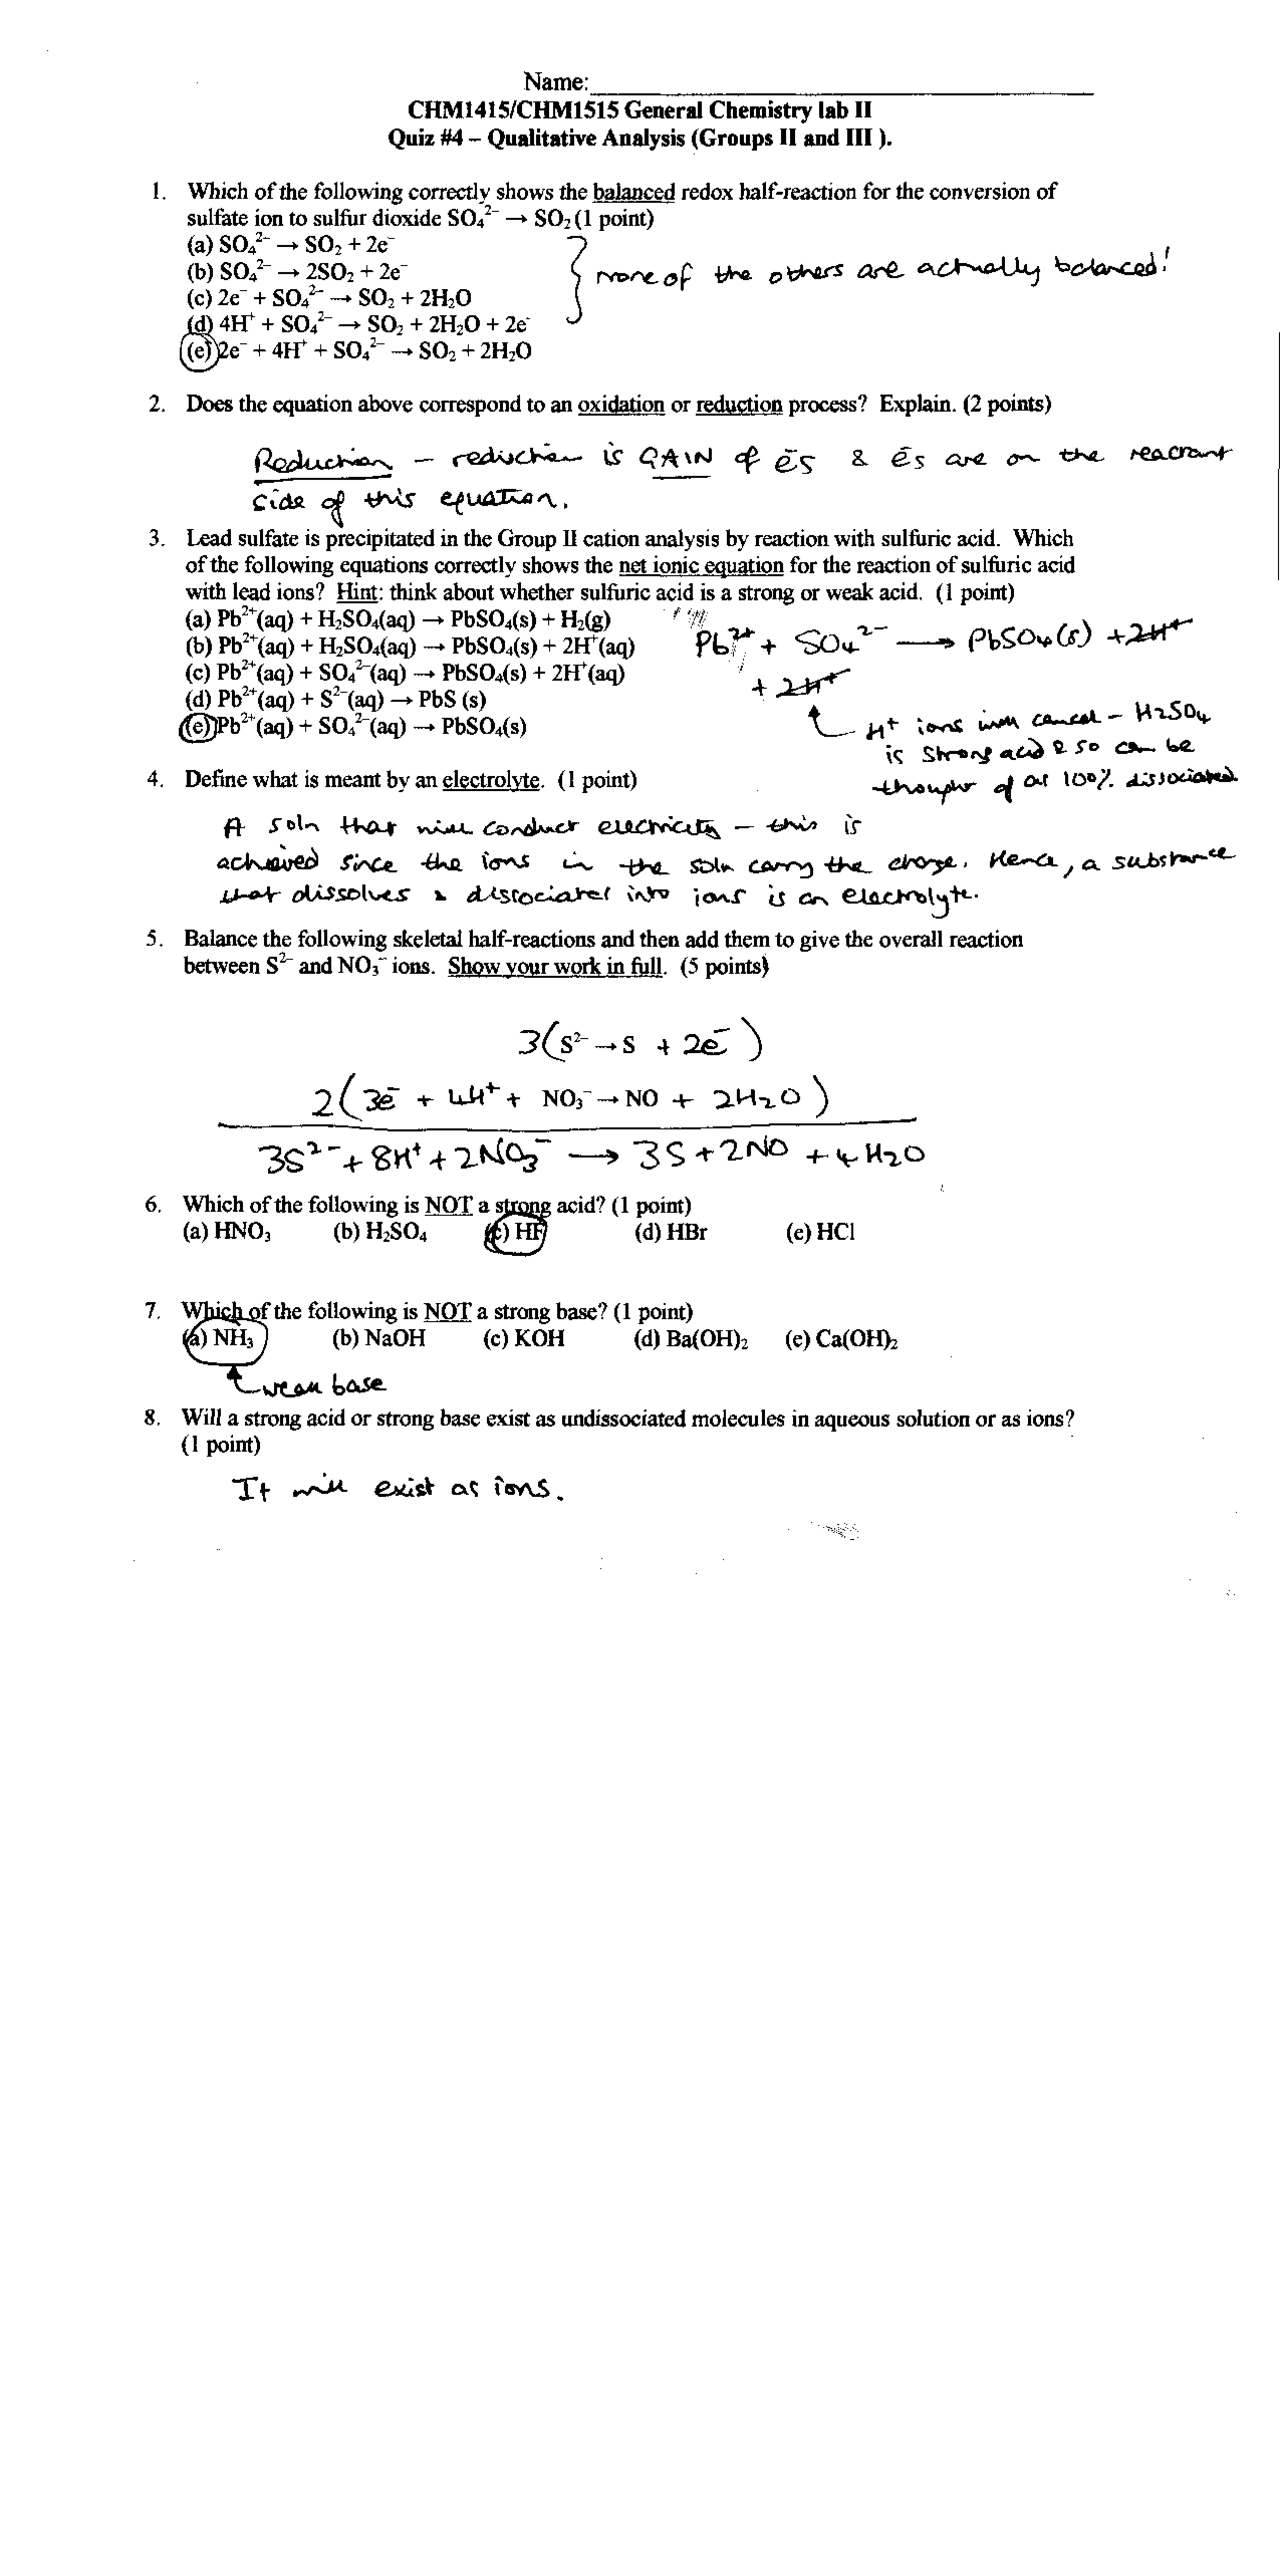 Name:
CHM1415/CHM1515 General Chemistry lab II
Quiz #4 – Qualitative Analysis (Groups II and III ).
1. Which of the following correctly shows the balanced redox half-reaction for the conversion of
sulfate ion to sulfur dioxide SO₄²⁻ → SO₂ (1 point)
(a) SO₄²⁻ → SO₂ + 2e⁻
(b) SO₄²⁻ → 2SO₂ + 2e⁻
none of the others are actually balanced!
(c) 2e⁻ + SO₄²⁻ → SO₂ + 2H₂O
(d) 4H⁺ + SO₄²⁻ → SO₂ + 2H₂O + 2e⁻
(e) 2e⁻ + 4H⁺ + SO₄²⁻ → SO₂ + 2H₂O
2. Does the equation above correspond to an oxidation or reduction process? Explain. (2 points)
Reduction – reduction is GAIN of ēs & ēs are on the reactant
side of this equation.
3. Lead sulfate is precipitated in the Group II cation analysis by reaction with sulfuric acid. Which
of the following equations correctly shows the net ionic equation for the reaction of sulfuric acid
with lead ions? Hint: think about whether sulfuric acid is a strong or weak acid. (1 point)
(a) Pb²⁺(aq) + H₂SO₄(aq) → PbSO₄(s) + H₂(g)
(b) Pb²⁺(aq) + H₂SO₄(aq) → PbSO₄(s) + 2H⁺(aq)
(c) Pb²⁺(aq) + SO₄²⁻(aq) → PbSO₄(s) + 2H⁺(aq)
(d) Pb²⁺(aq) + S²⁻(aq) → PbS (s)
(e) Pb²⁺(aq) + SO₄²⁻(aq) → PbSO₄(s)
Pb²⁺ + SO₄²⁻ → PbSO₄(s) + 2H⁺
+ 2H⁺
H⁺ ions will cancel – H₂SO₄
is strong acid & so can be
thought of as 100% dissociated
4. Define what is meant by an electrolyte. (1 point)
A soln that will conduct electricity – this is
achieved since the ions in the soln carry the charge. Hence, a substance
that dissolves & dissociates into ions is an electrolyte.
5. Balance the following skeletal half-reactions and then add them to give the overall reaction
between S²⁻ and NO₃⁻ ions. Show your work in full. (5 points)
3(S²⁻ → S + 2ē)
2(3ē + 4H⁺ + NO₃⁻ → NO + 2H₂O)
3S²⁻ + 8H⁺ + 2NO₃⁻ → 3S + 2NO + 4H₂O
6. Which of the following is NOT a strong acid? (1 point)
(a) HNO₃ (b) H₂SO₄ (c) HF (d) HBr (e) HCl
7. Which of the following is NOT a strong base? (1 point)
(a) NH₃ (b) NaOH (c) KOH (d) Ba(OH)₂ (e) Ca(OH)₂
weak base
8. Will a strong acid or strong base exist as undissociated molecules in aqueous solution or as ions?
(1 point)
It will exist as ions.